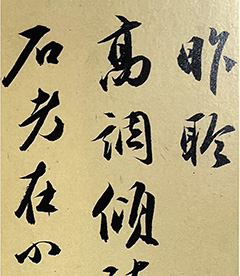 昨聆
高调倾
石老在小